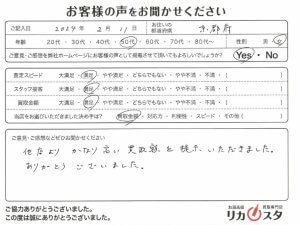 お客様の声をお聞かせください
ご記入日 2024年 2月 11日 お住いの都道府県 京都府
年齢 20代・30代・40代・50代・60代・70代・80代～ 性別 男・女
ご意見・ご感想を弊社ホームページにお客様の声として掲載させて頂いてもよろしいでしょうか? Yes・No
査定スピード 大満足・満足・どちらでもない・やや不満・不満（ ）
スタッフ接客 大満足・満足・どちらでもない・やや不満・不満（ ）
買取金額 大満足・満足・どちらでもない・やや不満・不満（ ）
当店をお選びいただきました決め手は? 買取金額・対応力・利便性・スピード・その他（ ）
ご意見・ご感想などぜひお聞かせください
他店より かなり高い 買取額を 提示いただきました。
ありがとう ございました。
ご協力ありがとうございました。
この度は誠にありがとうございました。
お酒高額 買取専門店
リカスタ